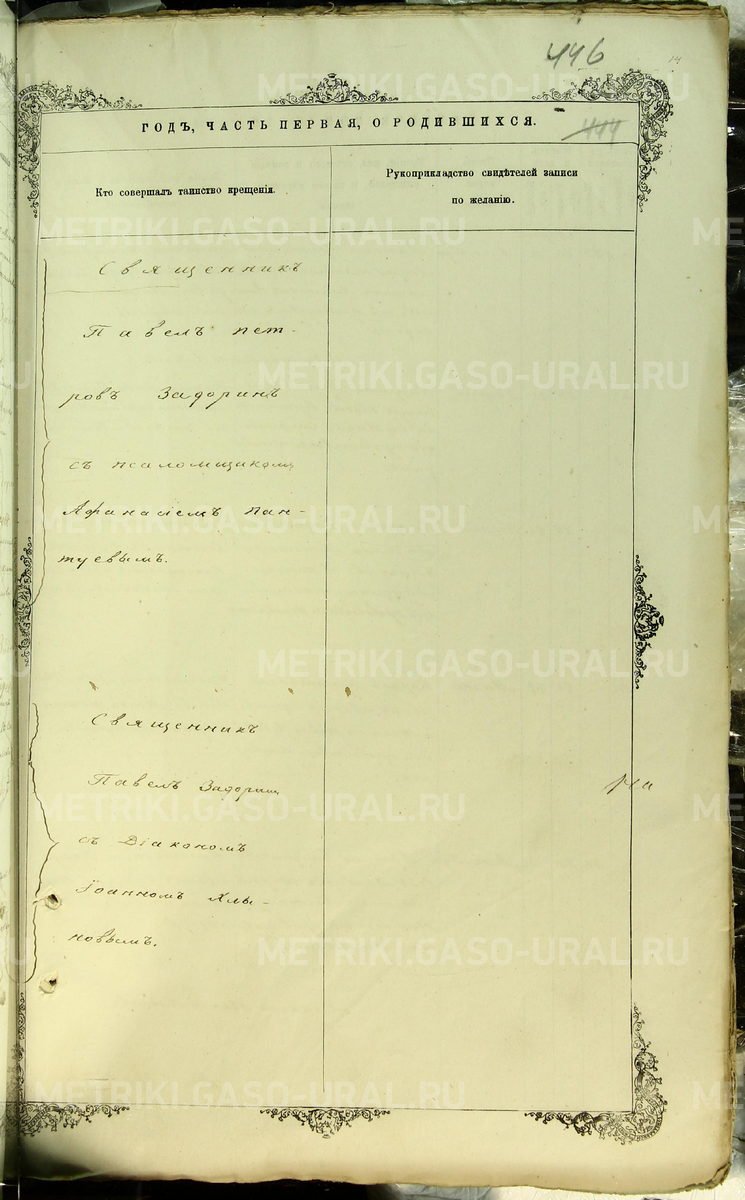 446
14
ГОДЪ, ЧАСТЬ ПЕРВАЯ, О РОДИВШИХСЯ.
414
Кто совершалъ таинство крещенія.
Рукоприкладство свидѣтелей записи
по желанію.
Священникъ
Павелъ Пет-
ровъ Задоринъ
съ псаломщикомъ
Афанасіемъ Пан-
туевымъ.
Священникъ
Павелъ Задоринъ
съ Діакономъ
Іоанномъ Хлы-
новымъ.
METRIKI.GASO-URAL.RU